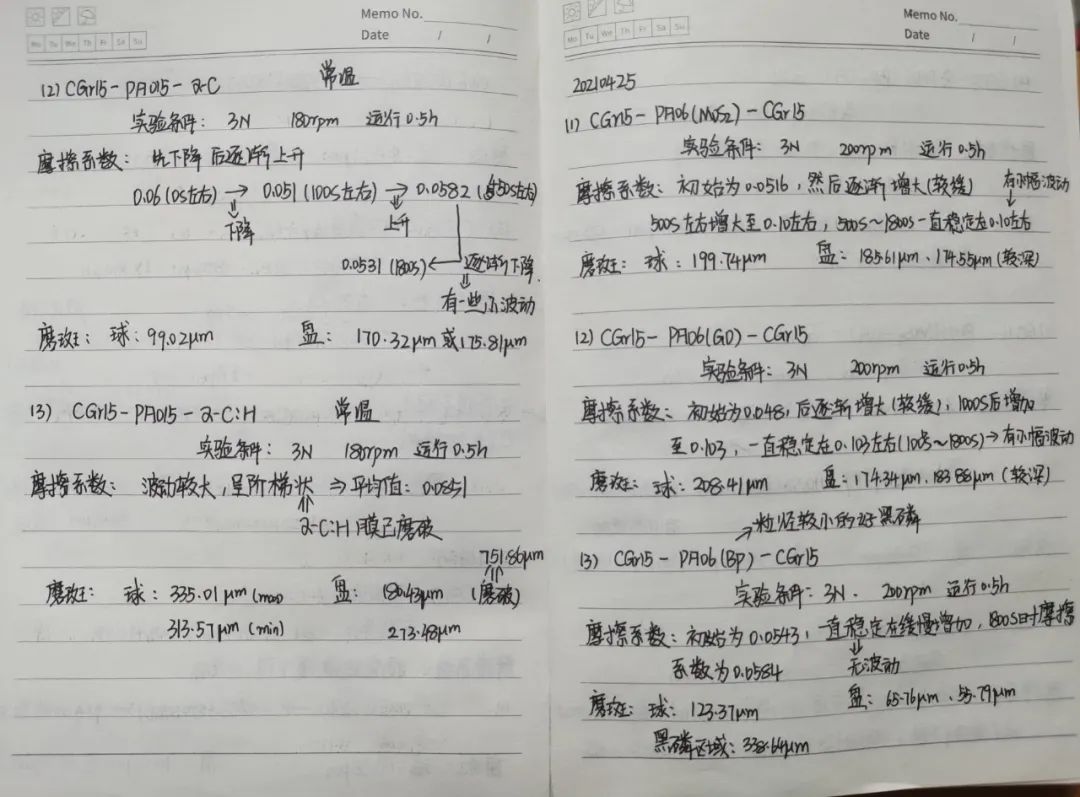 Memo No.
Mo Tu We Th Fr Sa Su
Date / /
(2) CGr15-PAO15-a-C 常温
实验条件: 3N 180rpm 运行0.5h
摩擦系数: 先下降后逐渐上升
0.06(0S左右) → 0.051(100S左右) → 0.0582(50S左右)
下降 上升
0.0531(1800S) ← 逐渐下降.
有一些小波动
磨斑: 球: 99.02μm 盘: 170.32μm或175.81μm
(3) CGr15-PAO15-a-C:H 常温
实验条件: 3N 180rpm 运行0.5h
摩擦系数: 波动较大,呈阶梯状 ⇒平均值: 0.0851
a-C:H膜已磨破
751.86μm
磨斑: 球: 335.01μm(max) 盘: 180.43μm (磨破)
313.57μm(min) 273.48μm
Memo No.
Mo Tu We Th Fr Sa Su
Date / /
20210425
(1) CGr15-PAO6(MoS2)-CGr15
实验条件: 3N 200rpm 运行0.5h
摩擦系数: 初始为0.0516,然后逐渐增大(较缓) 有小幅波动
500S左右增大至0.10左右,500S~1800S一直稳定在0.10左右
磨斑: 球: 199.74μm 盘: 185.61μm、174.55μm(较深)
(2) CGr15-PAO6(GO)-CGr15
实验条件: 3N 200rpm 运行0.5h
摩擦系数: 初始为0.048,后逐渐增大(较缓),1000S后增加
至0.103,一直稳定在0.103左右(1000S~1800S)→有小幅波动
磨斑: 球: 208.41μm 盘: 174.34μm,183.88μm(较深)
→粒径较小的好黑磷
(3) CGr15-PAO6(BP)-CGr15
实验条件: 3N. 200rpm 运行0.5h
摩擦系数: 初始为0.0543,一直稳定在缓慢增加,1800S时摩擦
系数为0.0584 无波动
磨斑: 球: 123.37μm 盘: 65.76μm、55.79μm
黑磷区域: 338.64μm